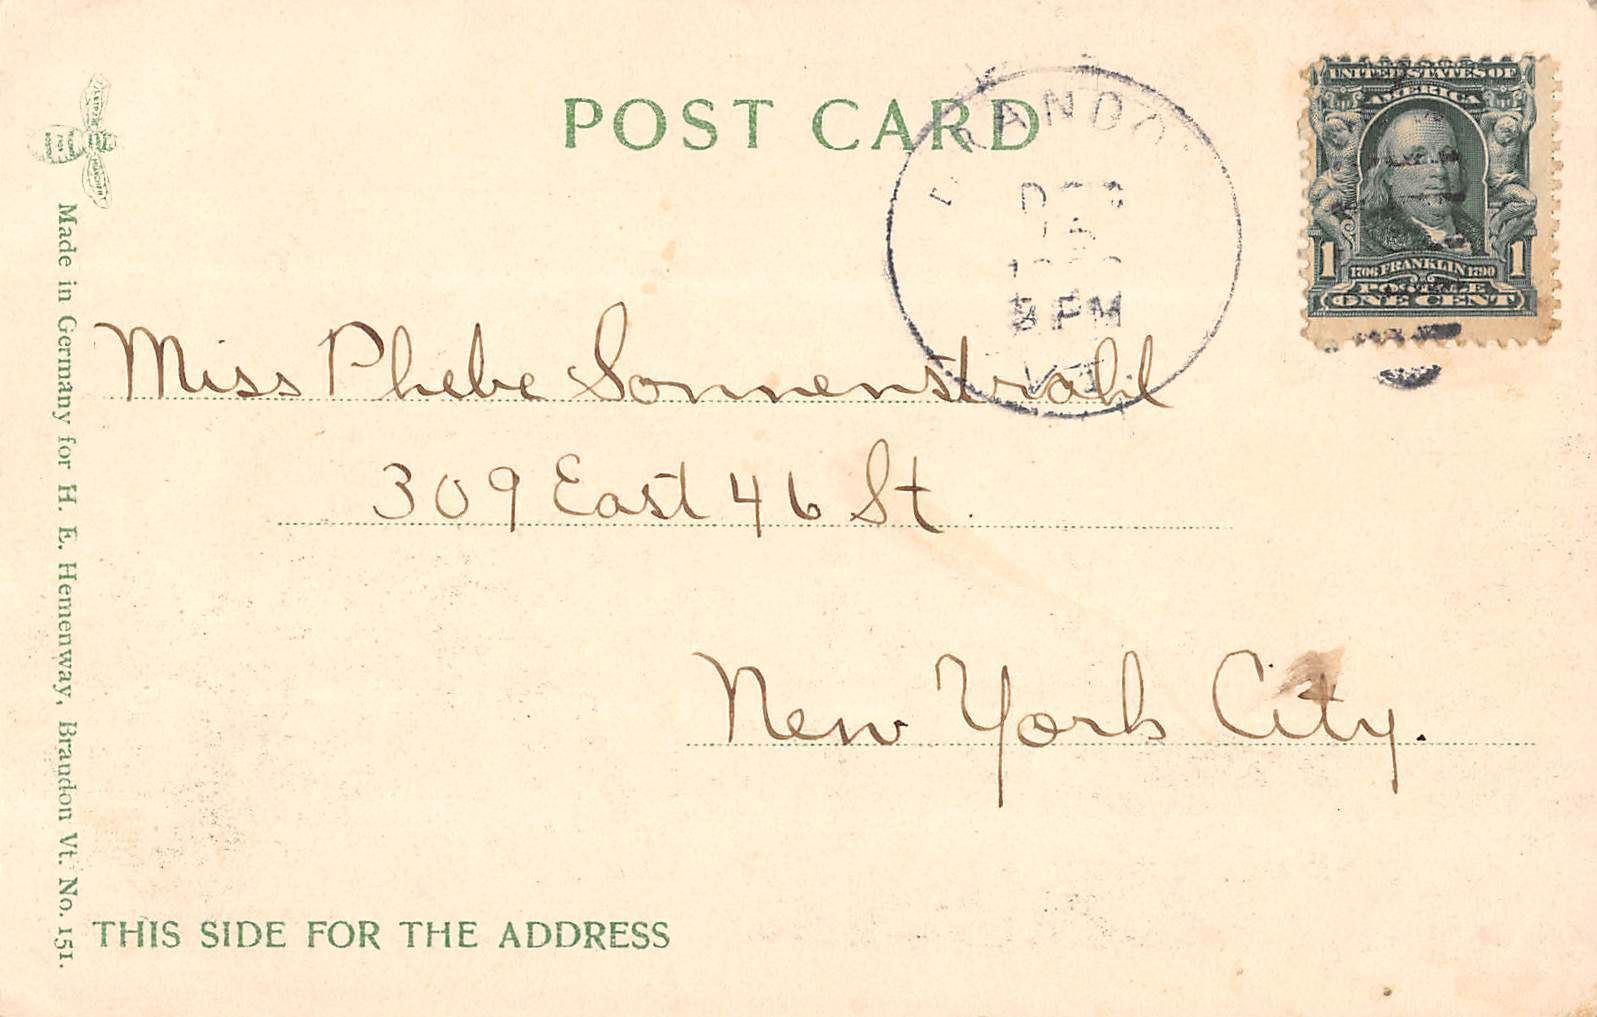 POST CARD
UNITED STATES OF
AMERICA
1 1706 FRANKLIN 1790 1
POSTAGE
ONE CENT
BRANDON
DEC
PM
VT
Miss Phebe Sonnenstrahl
309 East 46 St.
New York City.
Made in Germany for H. E. Hemenway, Brandon Vt. No. 151.
THIS SIDE FOR THE ADDRESS